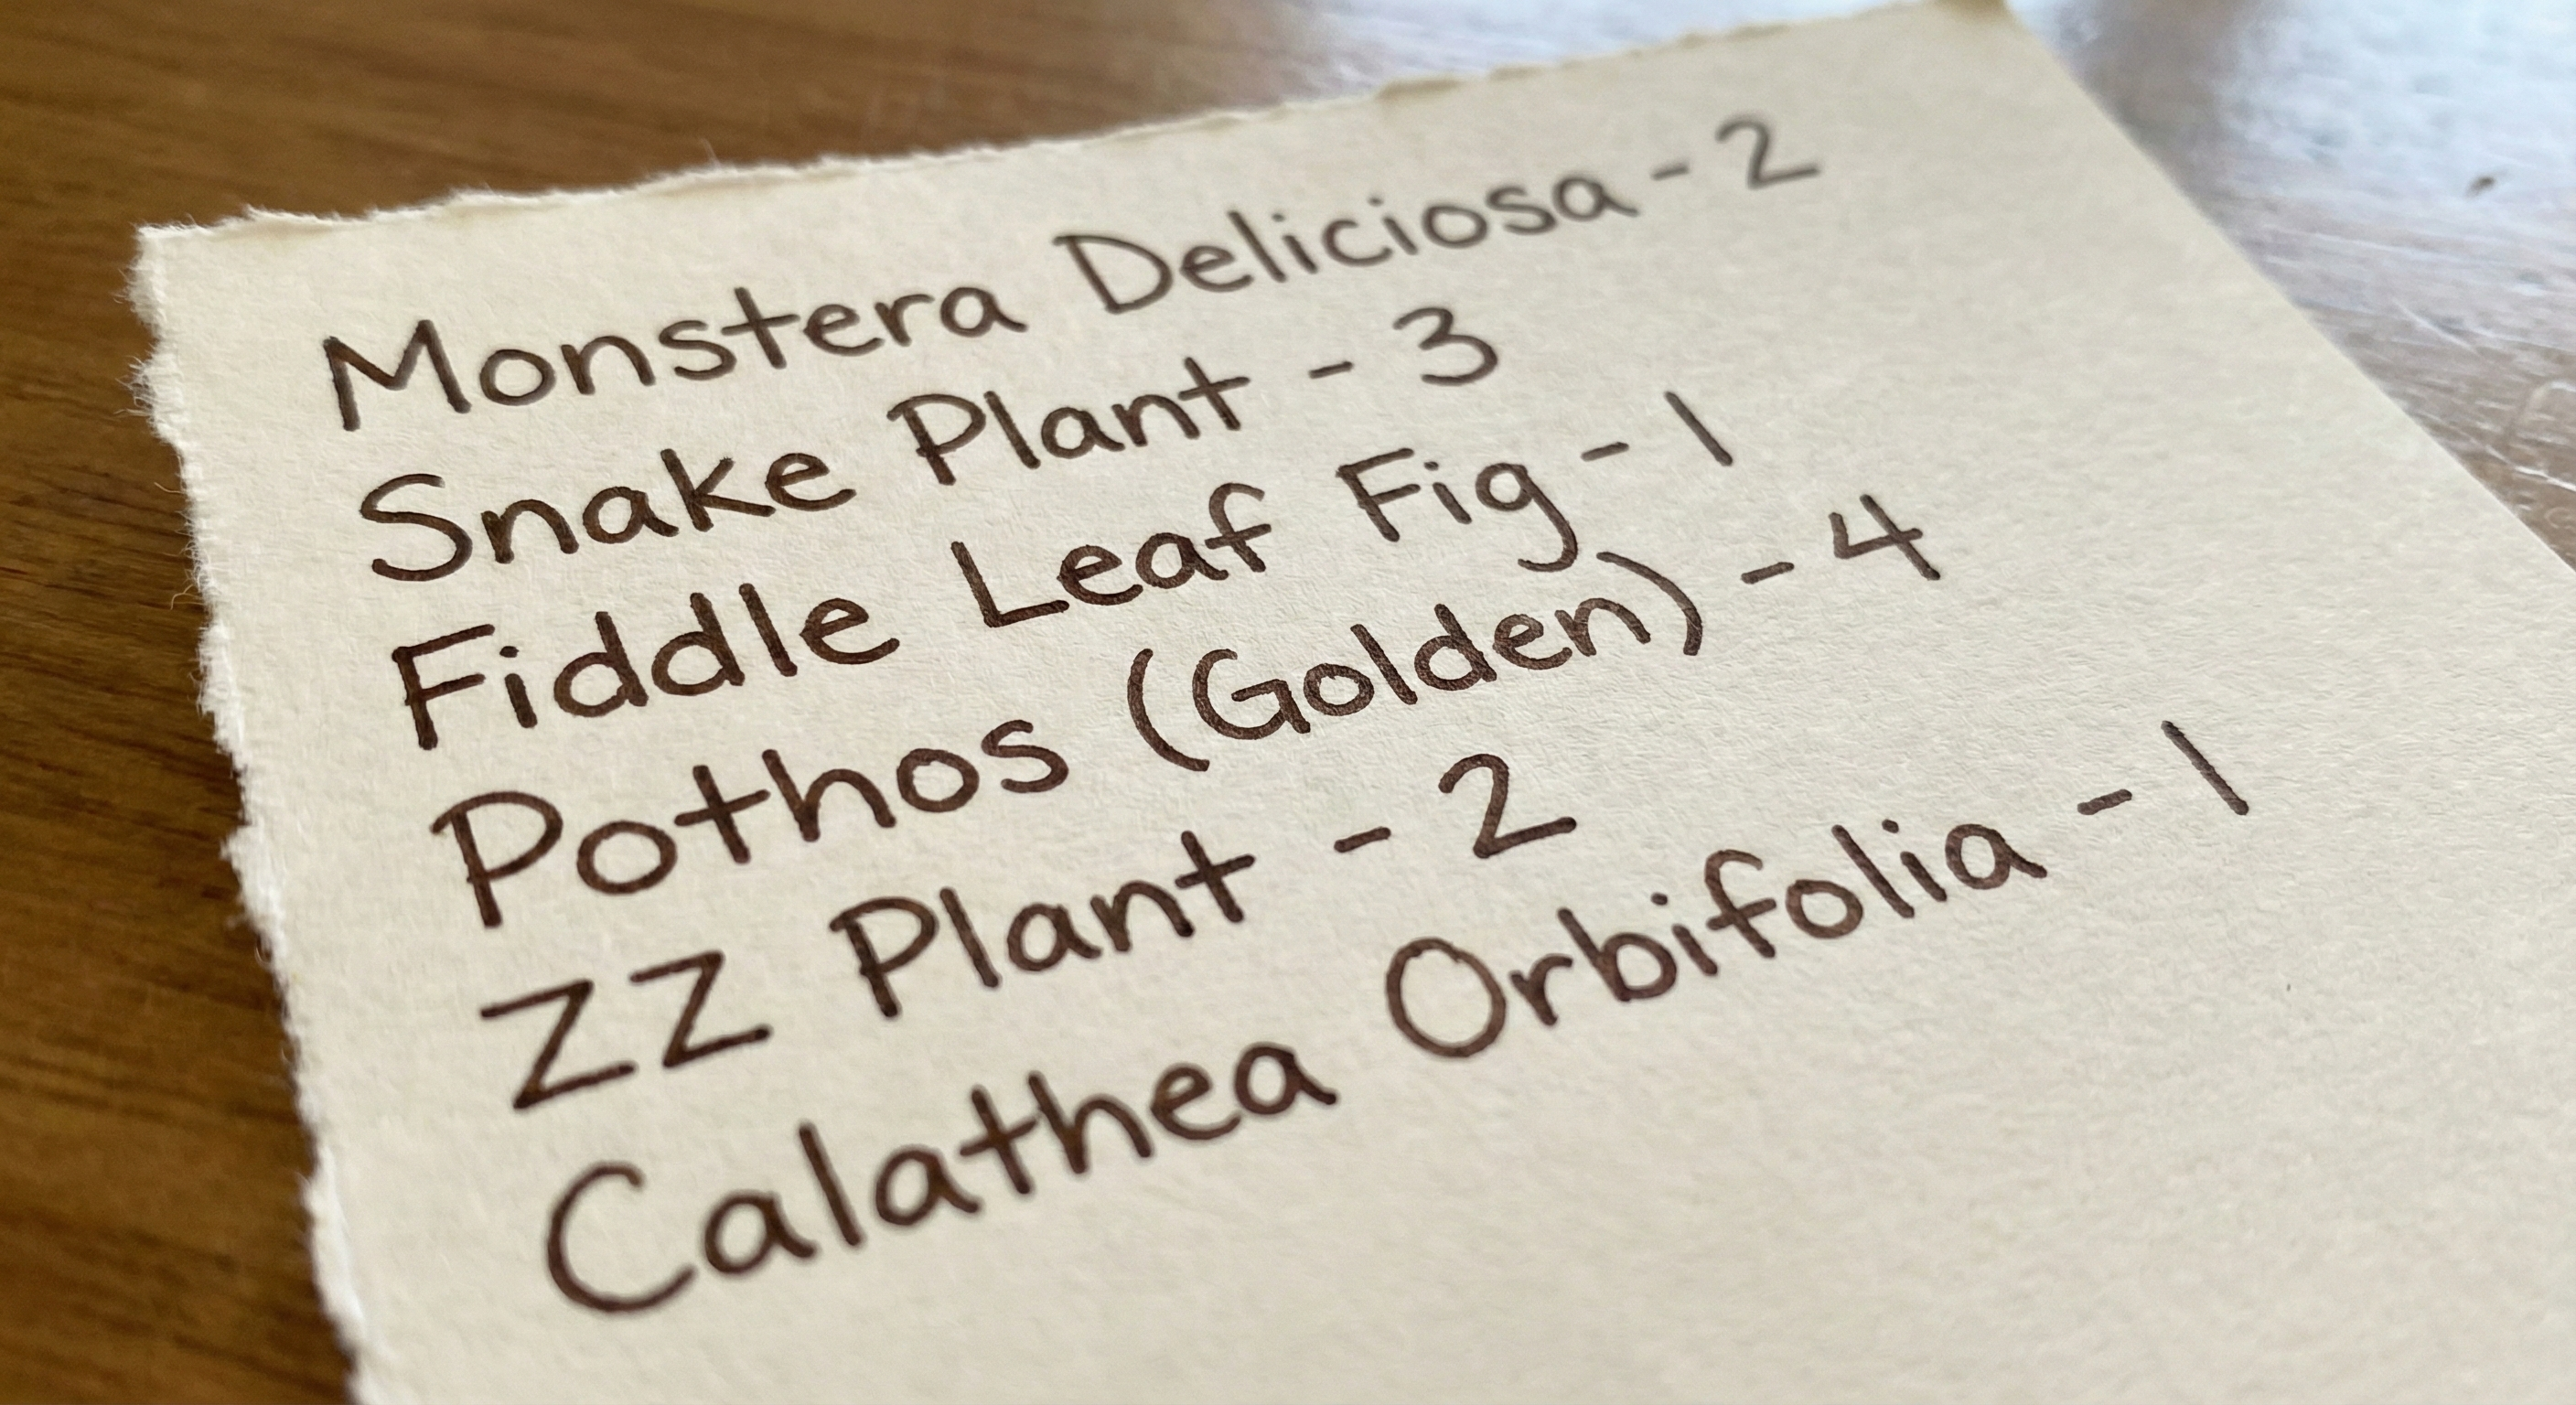 Monstera Deliciosa - 2
Snake Plant - 3
Fiddle Leaf Fig - 1
Pothos (Golden) - 4
ZZ Plant - 2
Calathea Orbifolia - 1